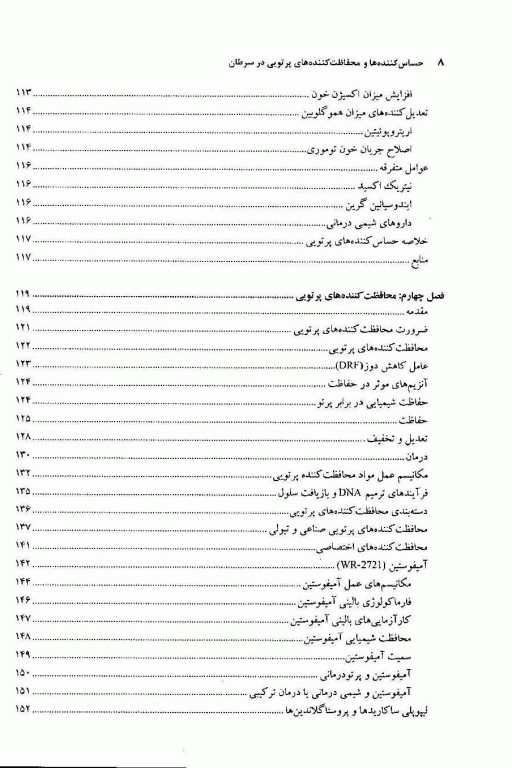 ۸ حساس‌کننده‌ها و محفاظت‌کننده‌های پرتویی در سرطان
افزایش میزان اکسیژن خون ۱۱۳
تعدیل‌کننده‌های میزان هموگلوبین ۱۱۴
اریتروپوئیتین ۱۱۴
اصلاح جریان خون توموری ۱۱۴
عوامل متفرقه ۱۱۶
نیتریک اکسید ۱۱۶
ایندوسیانین گرین ۱۱۶
داروهای شیمی درمانی ۱۱۶
خلاصه حساس‌کننده‌های پرتویی ۱۱۷
منابع ۱۱۷
فصل چهارم: محافظت‌کننده‌های پرتویی ۱۱۹
مقدمه ۱۱۹
ضرورت محافظت‌کننده‌های پرتویی ۱۲۱
محافظت‌کننده‌های پرتویی ۱۲۲
عامل کاهش دوز (DRF) ۱۲۳
آنزیم‌های موثر در حفاظت ۱۲۴
حفاظت شیمیایی در برابر پرتو ۱۲۴
حفاظت ۱۲۵
تعدیل و تخفیف ۱۲۸
درمان ۱۳۰
مکانیسم عمل مواد محافظت‌کننده پرتویی ۱۳۲
فرآیندهای ترمیم DNA و بازیافت سلول ۱۳۵
دسته‌بندی محافظت‌کننده‌های پرتویی ۱۳۶
محافظت‌کننده‌های پرتویی صناعی و تیولی ۱۳۷
محافظت‌کننده‌های اختصاصی ۱۴۱
آمیفوستین (WR-2721) ۱۴۲
مکانیسم‌های عمل آمیفوستین ۱۴۴
فارماکولوژی بالینی آمیفوستین ۱۴۶
کارآزمایی‌های بالینی آمیفوستین ۱۴۷
محافظت شیمیایی آمیفوستین ۱۴۸
سمیت آمیفوستین ۱۴۹
آمیفوستین و پرتودرمانی ۱۵۰
آمیفوستین و شیمی درمانی یا درمان ترکیبی ۱۵۱
لیپوپلی ساکاریدها و پروستاگلاندین‌ها ۱۵۲